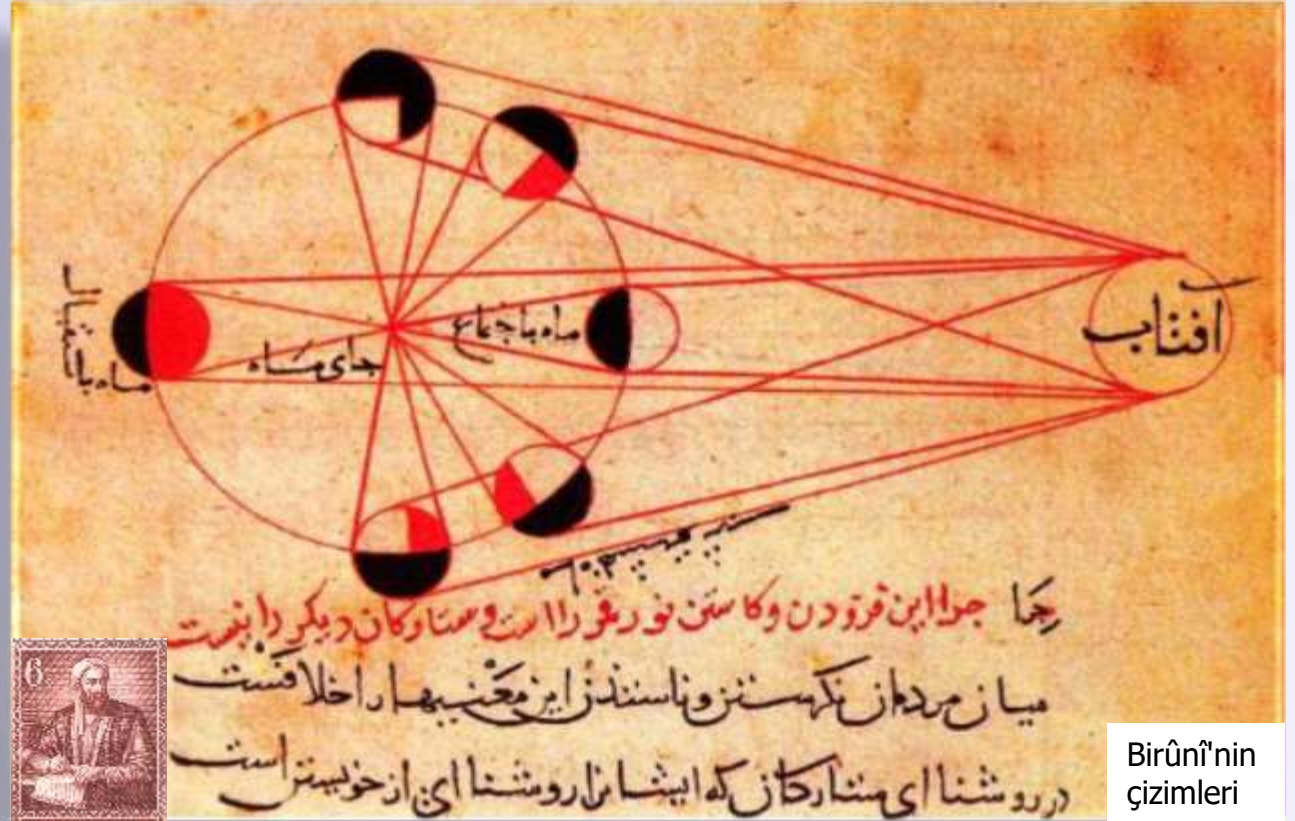 افتاب
ماه باجتماع
جای ماه
ماه باستقبال
چرا این فزودن وکاستن نور قمر را است وستارکان دیکر را نیست
میان مردمان نکرستن این معنیها را خلافست
در روشنا ای ستارکان که ایشانرا روشنا ای از خویشتن است
6
Birûnî'nin
çizimleri